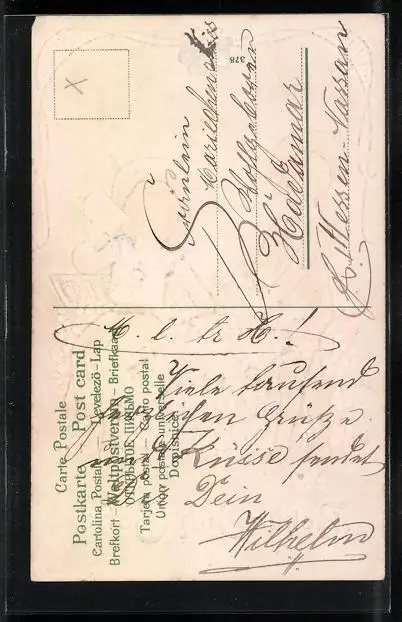 Carte Postale
Postkarte — Post card
Cartolina Postale — Levelező-Lap
Brefkort — Weltpostverein — Briefkaart
ОТКРЫТОЕ ПИСЬМО
Tarjeta postal — Carto postal
Union postale universelle
Dopisnice
378
X
Fräulein
Wohlgeboren
Hadamar
Hessen-Nassau
M. l. H.!
Viele tausend
herzlichen Grüße
und Küsse sendet
Dein
Wilhelm